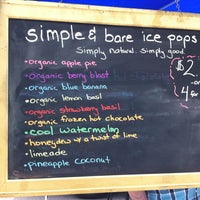 simple & bare ice pops
Simply natural. Simply good.
• organic apple pie
• organic berry blast
• organic blue banana
• organic lemon basil
• organic strawberry basil
• organic frozen hot chocolate
• cool watermelon
• honeydew w/ a twist of lime
• limeade
• pineapple coconut
$2
4 for